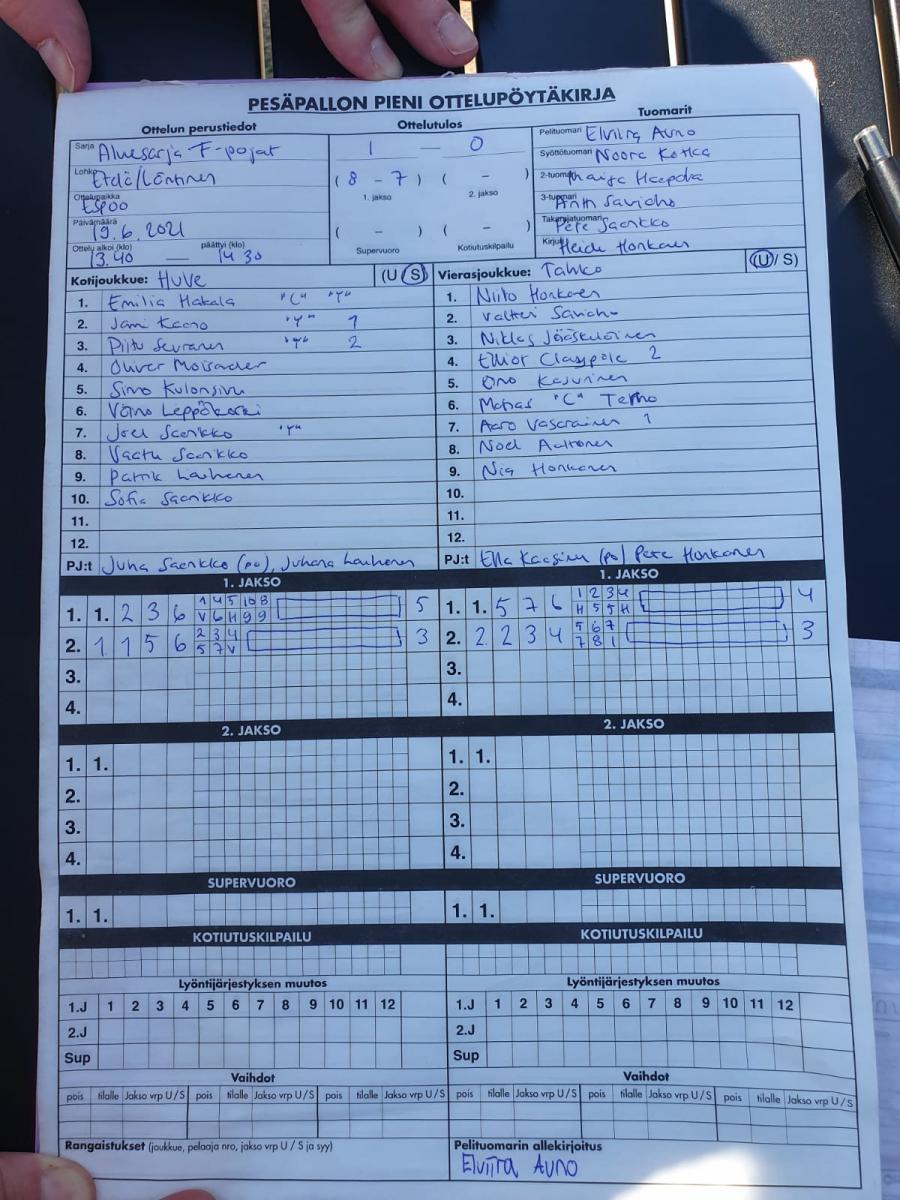 PESÄPALLON PIENI OTTELUPÖYTÄKIRJA
Ottelun perustiedot
Sarja Aluesarja F-pojat
Lohko Etelä/Läntinen
Ottelupaikka Espoo
Päivämäärä 19.6.2021
Ottelu alkoi (klo) päättyi (klo)
13.40 — 14 30
Ottelutulos
1 — 0
(8 - 7) ( - )
1. jakso 2. jakso
( - ) ( - )
Supervuoro Kotiutuskilpailu
Tuomarit
Pelituomari Elviira Auno
Syöttötuomari Noora Kotka
2-tuomari
3-tuomari Antti Savicho
Takarajatuomari Pete Saarikko
Kirjuri Heide Honkanen
Kotijoukkue: HuVe (U/S)
1. Emilia Hakala "C" "Y"
2. Jami Kaano "Y" 1
3. Piitu Seuranen "Y" 2
4. Oliver Moisander
5. Simo Kulonsivu
6. Väinö Leppäkoski
7. Joel Saarikko "Y"
8. Vaatu Saarikko
9. Patrik Lauhanen
10. Sofia Saarikko
11.
12.
PJ:t Juha Saarikko (po), Juhana Lauhanen
Vierasjoukkue: Tahko (U/S)
1. Niilo Honkanen
2. Valtteri Savicho
3. Niklas Jääskeläinen
4. Elliot Claypole 2
5. Ono Kasurinen
6. Matias "C" Terho
7. Aaro Vasarainen 1
8. Noel Aaltonen
9. Nia Honkanen
10.
11.
12.
PJ:t Ella Kaasinen (po) Pete Honkanen
1. JAKSO
1 4 5 10 8
1. 1. 2 3 6 V 6 H 9 9 5
2 3 4
2. 1 1 5 6 5 7 V 3
3.
4.
1. JAKSO
1 2 3 4
1. 1. 5 7 6 H 5 5 H 4
5 6 7
2. 2 2 3 4 7 8 1 3
3.
4.
2. JAKSO
1. 1.
2.
3.
4.
2. JAKSO
1. 1.
2.
3.
4.
SUPERVUORO
1. 1.
SUPERVUORO
1. 1.
KOTIUTUSKILPAILU
KOTIUTUSKILPAILU
Lyöntijärjestyksen muutos
1.J 1 2 3 4 5 6 7 8 9 10 11 12
2.J
Sup
Lyöntijärjestyksen muutos
1.J 1 2 3 4 5 6 7 8 9 10 11 12
2.J
Sup
Vaihdot
pois tilalle Jakso vrp U/S pois tilalle Jakso vrp U/S pois tilalle Jakso vrp U/S
Vaihdot
pois tilalle Jakso vrp U/S pois tilalle Jakso vrp U/S pois tilalle Jakso vrp U/S
Rangaistukset (joukkue, pelaaja nro, jakso vrp U / S ja syy)
Pelituomarin allekirjoitus
Elviira Auno